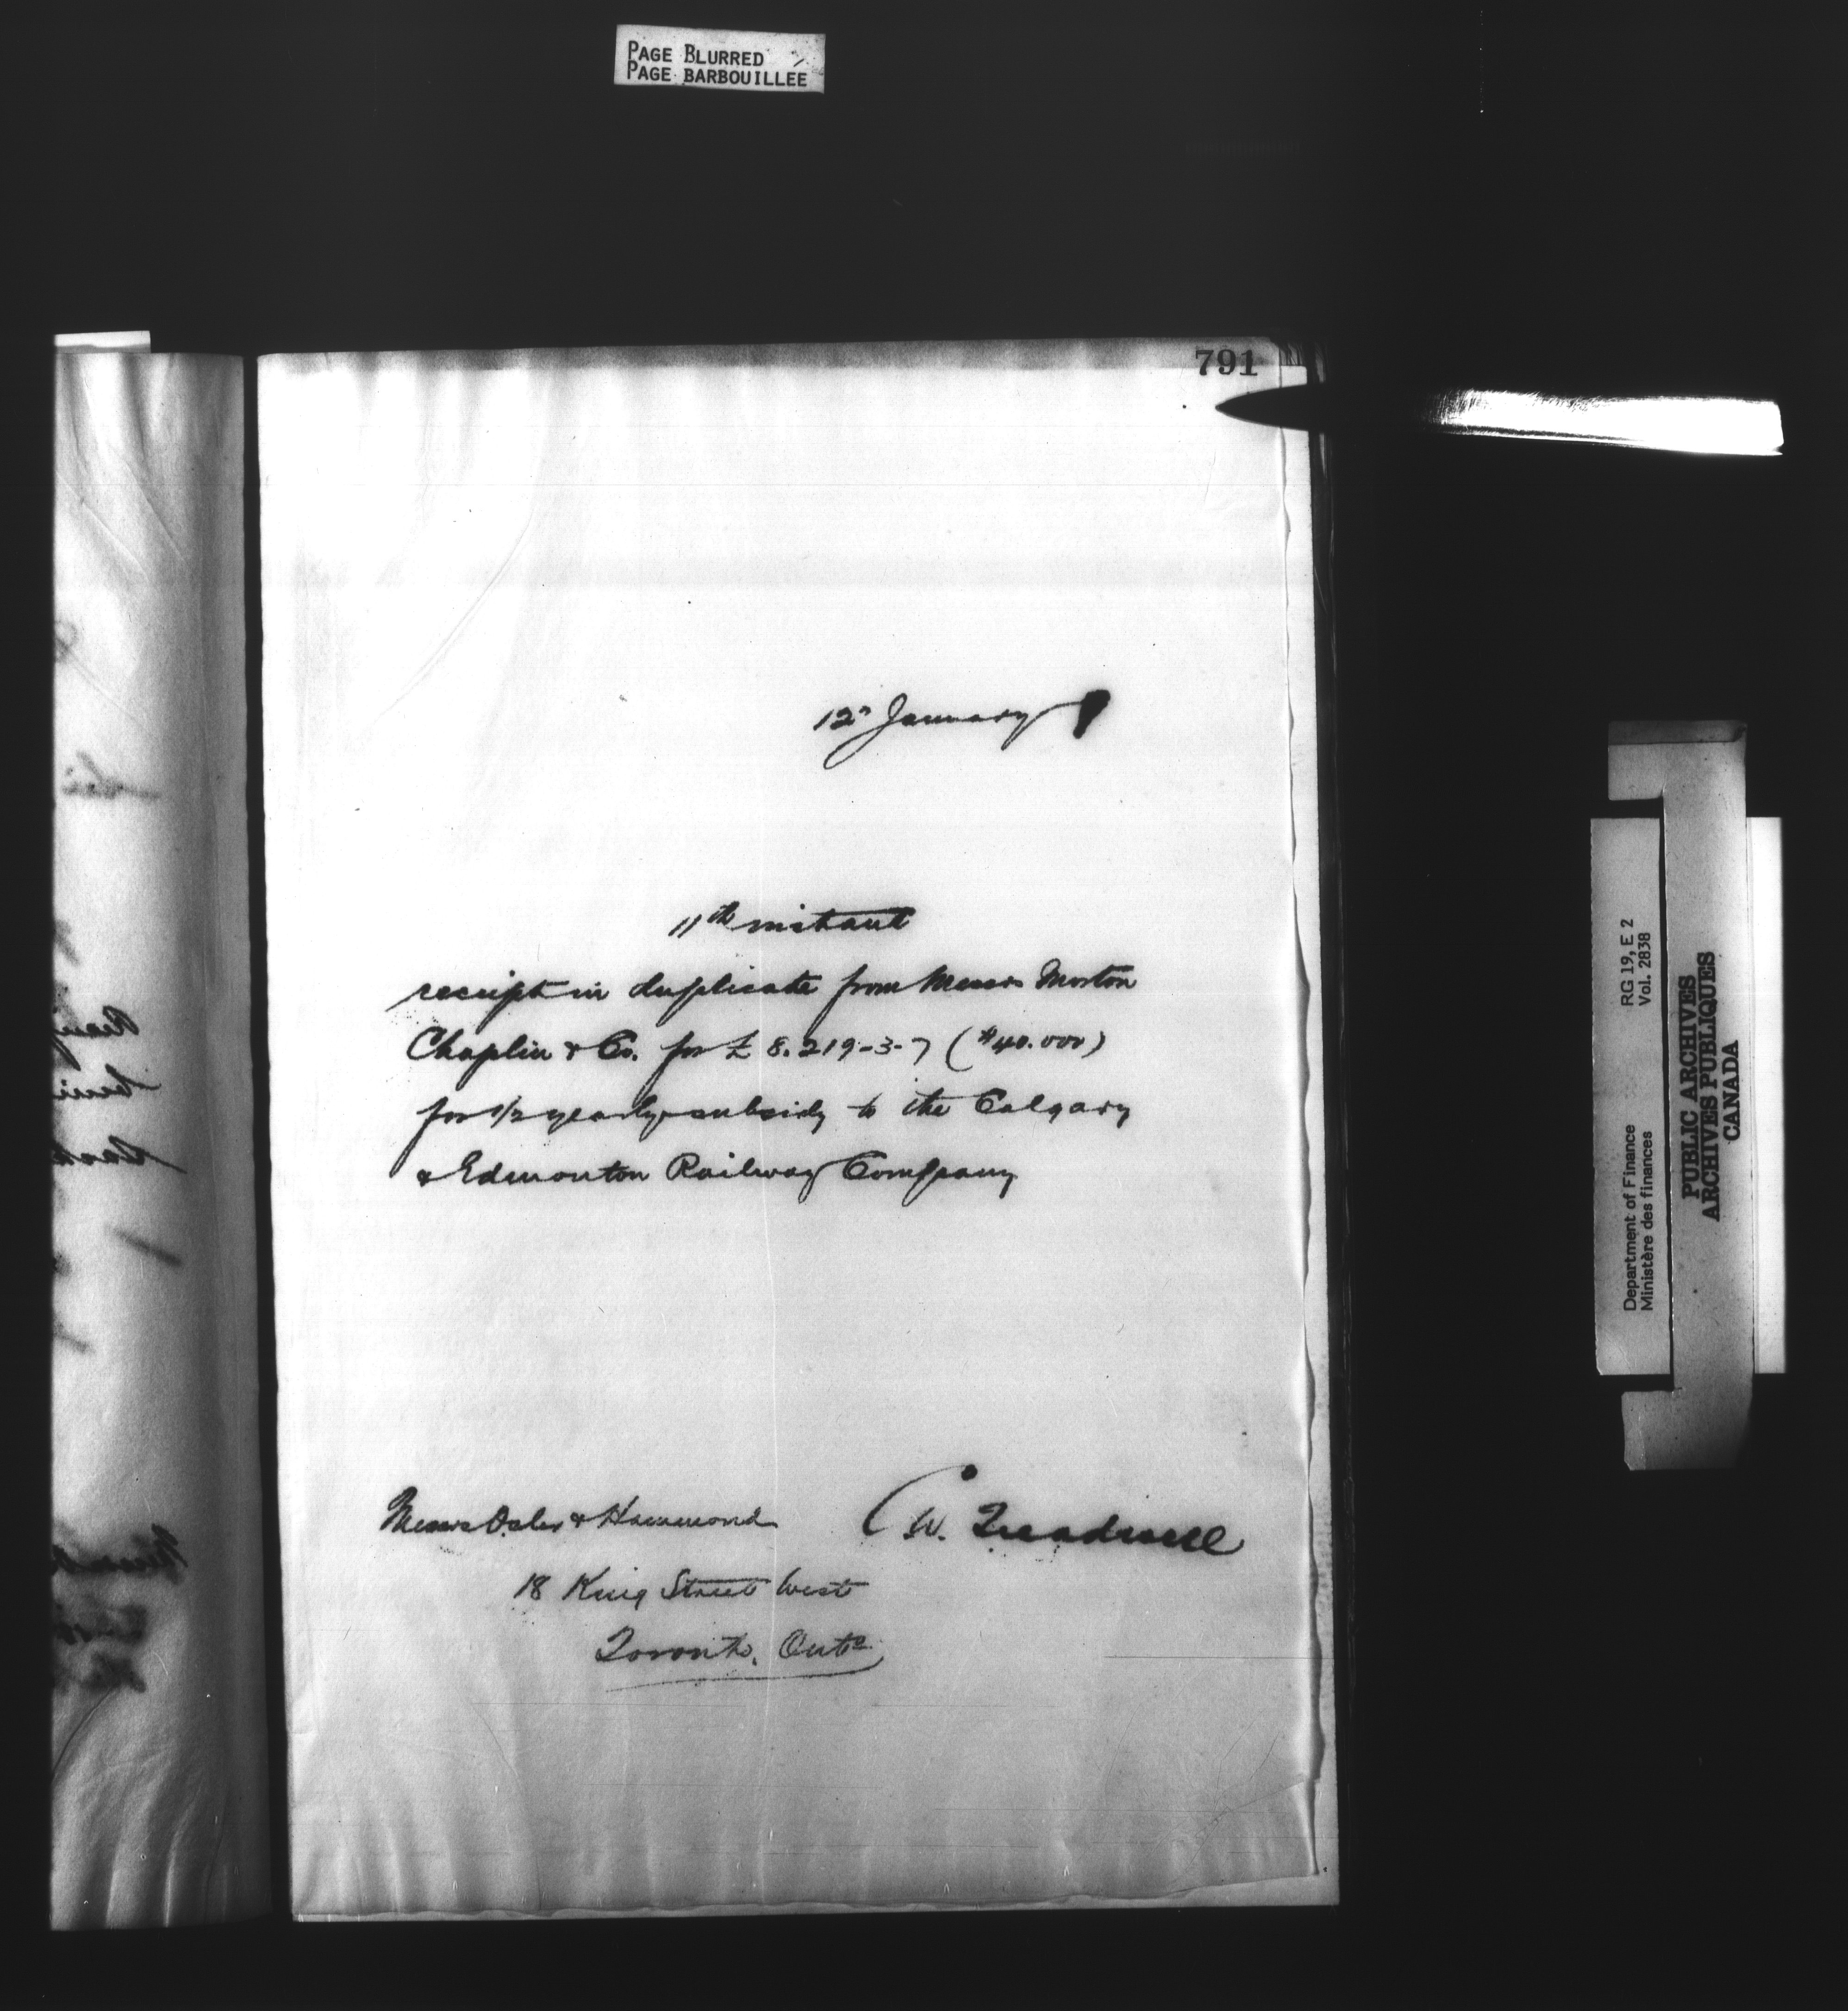 PAGE BLURRED
PAGE BARBOUILLEE
791
12th January
11th instant
receipt in duplicate from Messrs Morton
Chaplin & Co. for £ 8.219-3-7 ($40.000)
for 1/2 yearly subsidy to the Calgary
& Edmonton Railway Company
Messrs Osler & Hammond
C W. Treadwell
18 King Street West
Toronto, Onto
RG 19, E 2
Vol. 2838
Department of Finance
Ministère des finances
PUBLIC ARCHIVES
ARCHIVES PUBLIQUES
CANADA